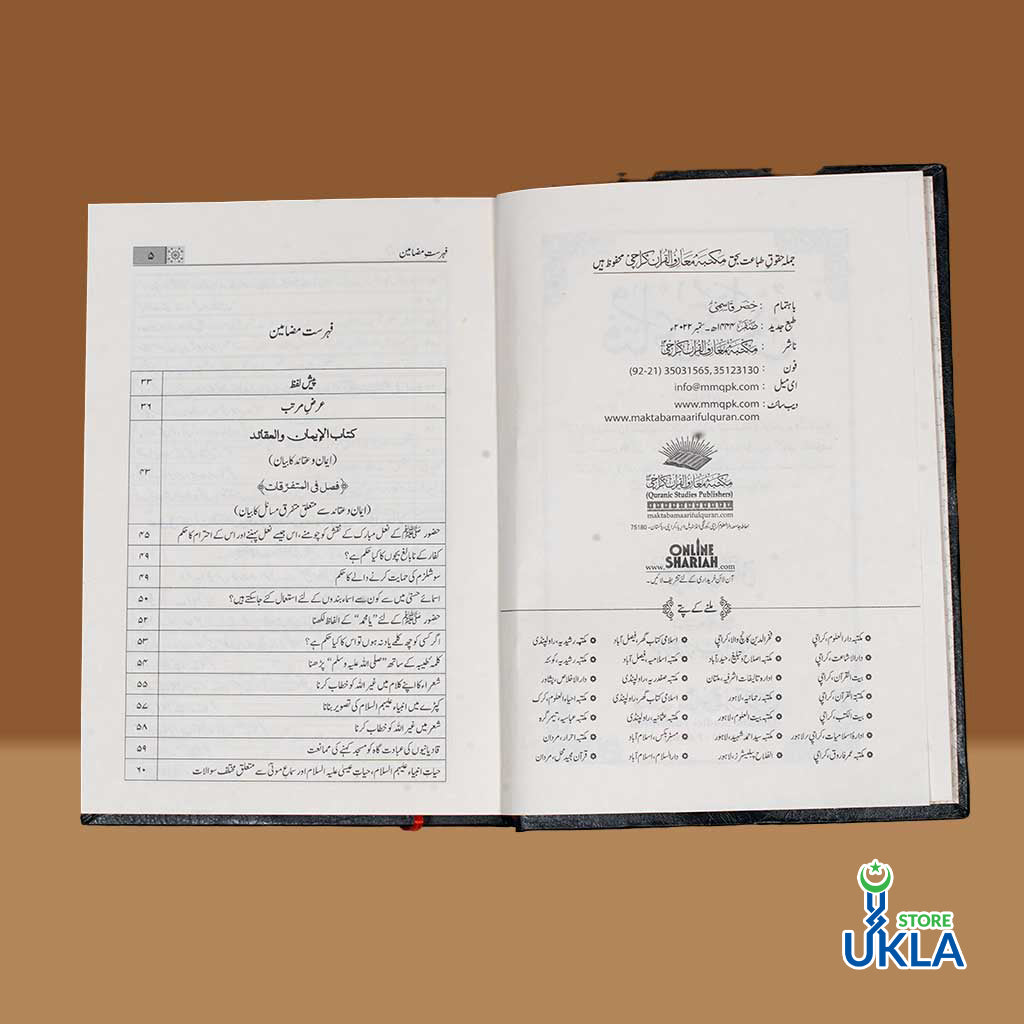 جملہ حقوقِ طباعت بحق مکتبہ معارف القرآن کراچی محفوظ ہیں
باہتمام : خضر قاسمی
طبع جدید : صفر ۱۴۴۴ھ ۔ ستمبر ۲۰۲۲ء
ناشر : مکتبہ معارف القرآن کراچی
فون : (92-21) 35031565, 35123130
ای میل : info@mmqpk.com
ویب سائٹ : www.mmqpk.com
www.maktabamaarifulquran.com
مکتبہ معارف القرآن کراچی
(Quranic Studies Publishers)
maktabamaarifulquran.com
75180
ONLINE
SHARIAH
www. .com
آن لائن خریداری کے لئے تشریف لائیں۔
ملنے کے پتے
مکتبہ دارالعلوم، کراچی
دارالاشاعت، کراچی
بیت القرآن، کراچی
مکتبۃ القرآن، کراچی
بیت الکتب، کراچی
ادارۂ اسلامیات، کراچی/لاہور
مکتبہ عمر فاروق، کراچی
مکتبہ اصلاح و تبلیغ، حیدرآباد
ادارہ تالیفات اشرفیہ، ملتان
مکتبہ رحمانیہ، لاہور
مکتبہ بیت العلوم، لاہور
مکتبہ سید احمد شہید، لاہور
الفلاح پبلیشرز، لاہور
اسلامی کتاب گھر، فیصل آباد
مکتبہ اسلامیہ، فیصل آباد
مکتبہ صفدریہ، راولپنڈی
اسلامی کتاب گھر، راولپنڈی
مکتبہ عثمانیہ، راولپنڈی
مسٹر بکس، اسلام آباد
دارالسلام، اسلام آباد
مکتبہ رشیدیہ، راولپنڈی
مکتبہ رشیدیہ، کوئٹہ
دارالاخلاص، پشاور
مکتبہ احیاء العلوم، کرک
مکتبہ عباسیہ، تیمرگرہ
مکتبہ احرار، مردان
قرآن محل، مردان
فہرست مضامین ۵
فہرست مضامین
پیش لفظ ۳۳
عرضِ مرتب ۳۶
کتاب الإیمان والعقائد
(ایمان وعقائد کا بیان)
﴿فصل فی المتفرقات﴾ ۴۳
(ایمان وعقائد سے متعلق متفرق مسائل کا بیان)
حضور ﷺ کے نعل مبارک کے نقش کو چومنے، اس جیسے نعل پہننے اور اس کے احترام کا حکم ۴۵
کفار کے نابالغ بچوں کا کیا حکم ہے؟ ۴۹
سوشلزم کی حمایت کرنے والے کا حکم ۴۹
اسمائے حسنٰی میں سے کون سے اسماء بندوں کے لئے استعمال کئے جاسکتے ہیں؟ ۵۰
حضور ﷺ کے لئے ”یا محمد“ کے الفاظ لکھنا ۵۲
اگر کسی کو چھ کلمے یاد نہ ہوں تو اس کا کیا حکم ہے؟ ۵۳
کلمہ طیبہ کے ساتھ ”صلی اللہ علیہ وسلم“ پڑھنا ۵۴
شعراء کا اپنے کلام میں غیر اللہ کو خطاب کرنا ۵۵
کپڑے میں انبیاء علیہم السلام کی تصویر بنانا ۵۷
شعر میں غیر اللہ کو خطاب کرنا ۵۸
قادیانیوں کی عبادت گاہ کو مسجد کہنے کی ممانعت ۵۹
حیاتِ انبیاء علیہم السلام، حیاتِ عیسیٰ علیہ السلام اور سماعِ موتیٰ سے متعلق مختلف سوالات ۶۰
STORE
UKLA